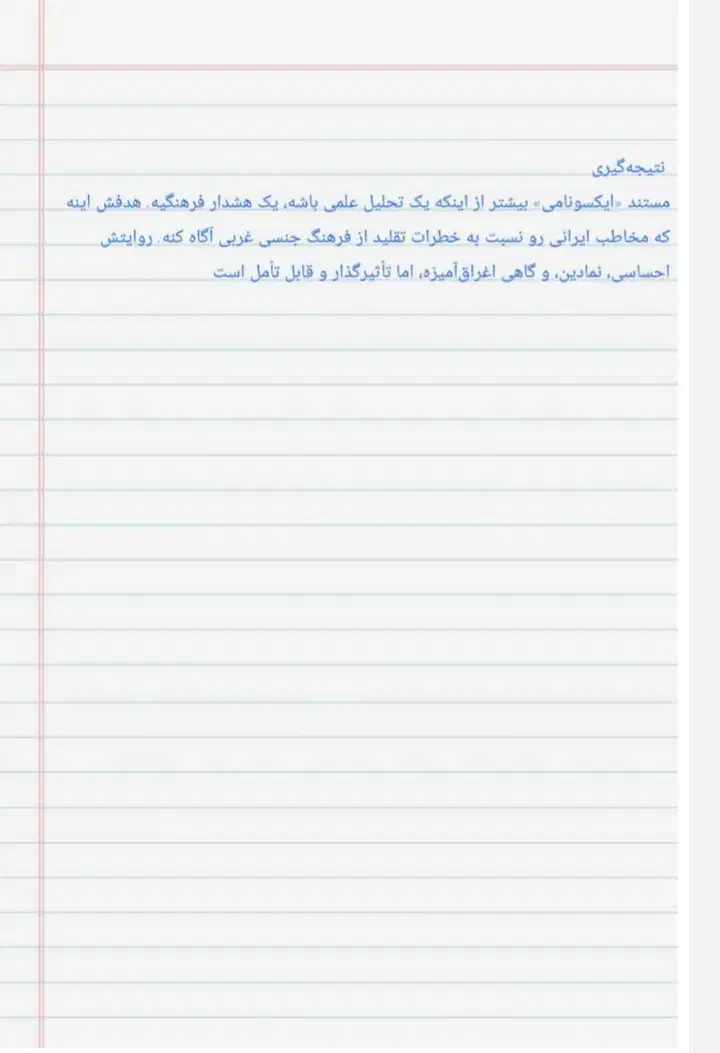 نتیجه‌گیری
مستند «ایکسونامی» بیشتر از اینکه یک تحلیل علمی باشه، یک هشدار فرهنگیه. هدفش اینه
که مخاطب ایرانی رو نسبت به خطرات تقلید از فرهنگ جنسی غربی آگاه کنه. روایتش
احساسی، نمادین، و گاهی اغراق‌آمیزه، اما تأثیرگذار و قابل تأمل است